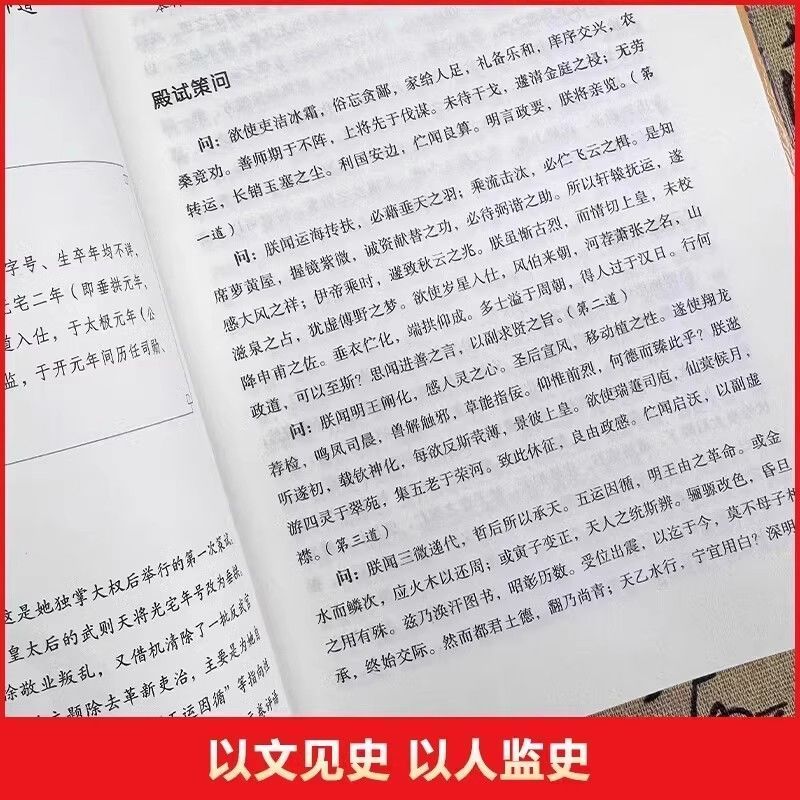 字号、生卒年均不详，
光宅二年（即垂拱元年，
道入仕，于太极元年（公
监，于开元年间历任司勋、
这是她独掌大权后举行的第一次策试，
皇太后的武则天将光宅年号改为垂拱，
徐敬业叛乱，又借机清除了一批反武官
主题除去革新吏治，主要是为她自
五运因循”等指向性
殿试策问
问：欲使吏洁冰霜，俗忘贪鄙，家给人足，礼备乐和，庠序交兴，农
桑竞劝。善师期于不阵，上将先于伐谋。未待干戈，遽清金庭之祲；无劳
转运，长销玉塞之尘。利国安边，伫闻良算。明言政要，朕将亲览。（第
一道）
问：朕闻运海抟扶，必藉垂天之羽；乘流击汰，必伫飞云之楫。是知
席萝黄屋，握镜紫微，诚资献替之功，必待弼谐之助。所以轩辕抚运，遂
感大风之祥；伊帝乘时，遽致秋云之兆。朕虽惭古烈，而情切上皇，未校
滋泉之占，犹虚傅野之梦。欲使岁星入仕，风伯来朝，河荐萧张之名，山
降申甫之佐。垂衣伫化，端拱仰成。多士溢于周朝，得人过于汉日。行何
政道，可以至斯？思闻进善之言，以副求贤之旨。（第二道）
问：朕闻明王阐化，感人灵之心。圣后宣风，移动植之性。遂使翔龙
荐检，鸣凤司晨，兽解触邪，草能指佞。仰惟前烈，何德而臻此乎？朕逖
听遂初，载钦神化，每欲反斯莸薄，景彼上皇。欲使瑞莲司庖，仙蓂候月，
游四灵于翠苑，集五老于荣河。致此休征，良由政感。伫闻启沃，以副虚
襟。（第三道）
问：朕闻三微递代，哲后所以承天。五运因循，明王由之革命。或金
水而鳞次，应火木以还周；或寅子变正，天人之统斯辨。骊骊改色，昏旦
之用有殊。兹乃涣汗图书，昭彰历数。受位出震，以迄于今，莫不母子相
承，终始交际。然而都君土德，翻乃尚青；天乙水行，宁宜用白？深明
以文见史 以人监史